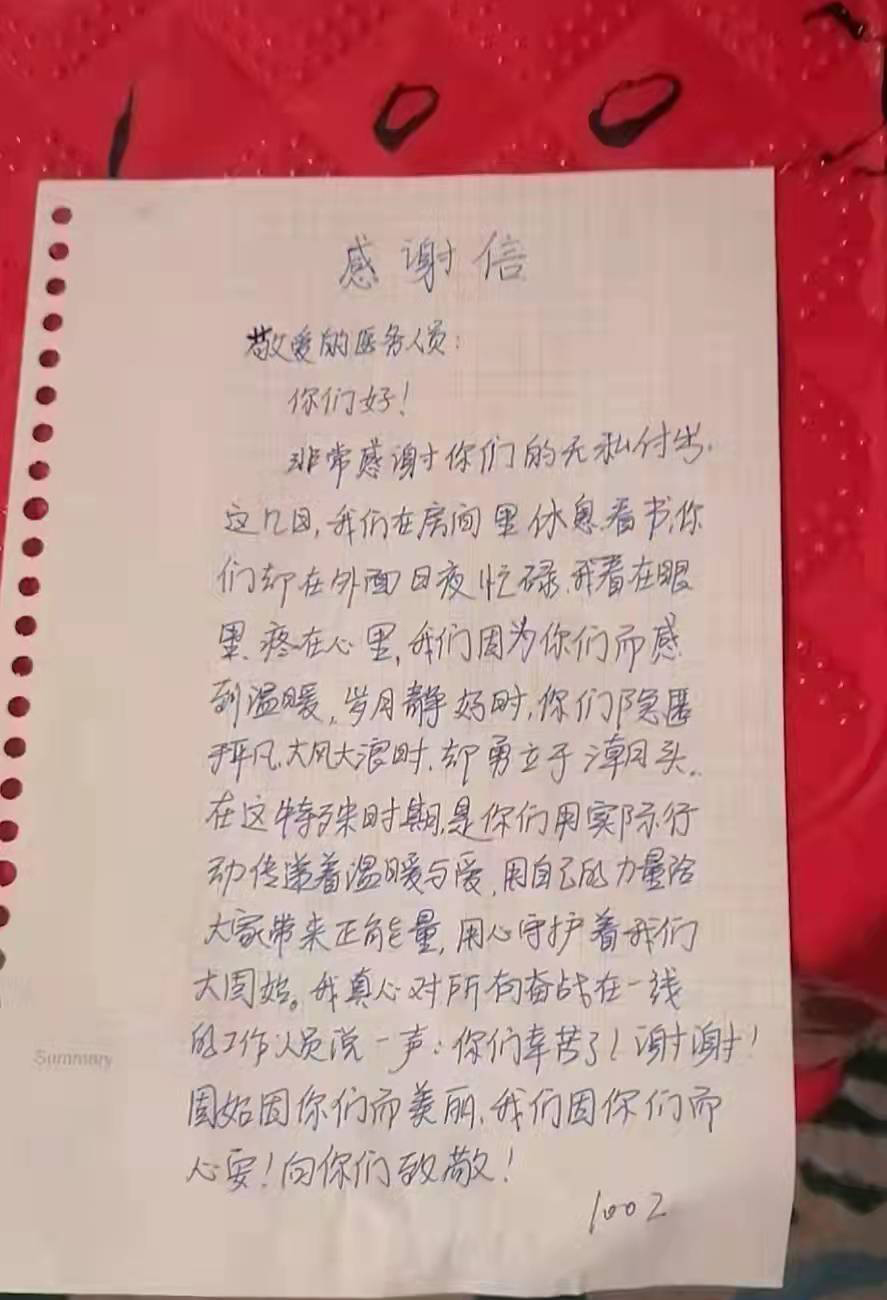 100
感谢信
敬爱的医务人员：
你们好！
非常感谢你们的无私付出.
这几日,我们在房间里休息.看书,你
们却在外面日夜忙碌.我看在眼
里.疼在心里,我们因为你们而感
到温暖,岁月静好时,你们隐匿
平凡.大风大浪时.却勇立于潮头..
在这特殊时期,是你们用实际行
动传递着温暖与爱,用自己的力量给
大家带来正能量,用心守护着我们
大固始。我真心对所有奋战在一线
的工作人员说一声:你们辛苦了!谢谢!
固始因你们而美丽.我们因你们而
心安!向你们致敬!
1002
Summary